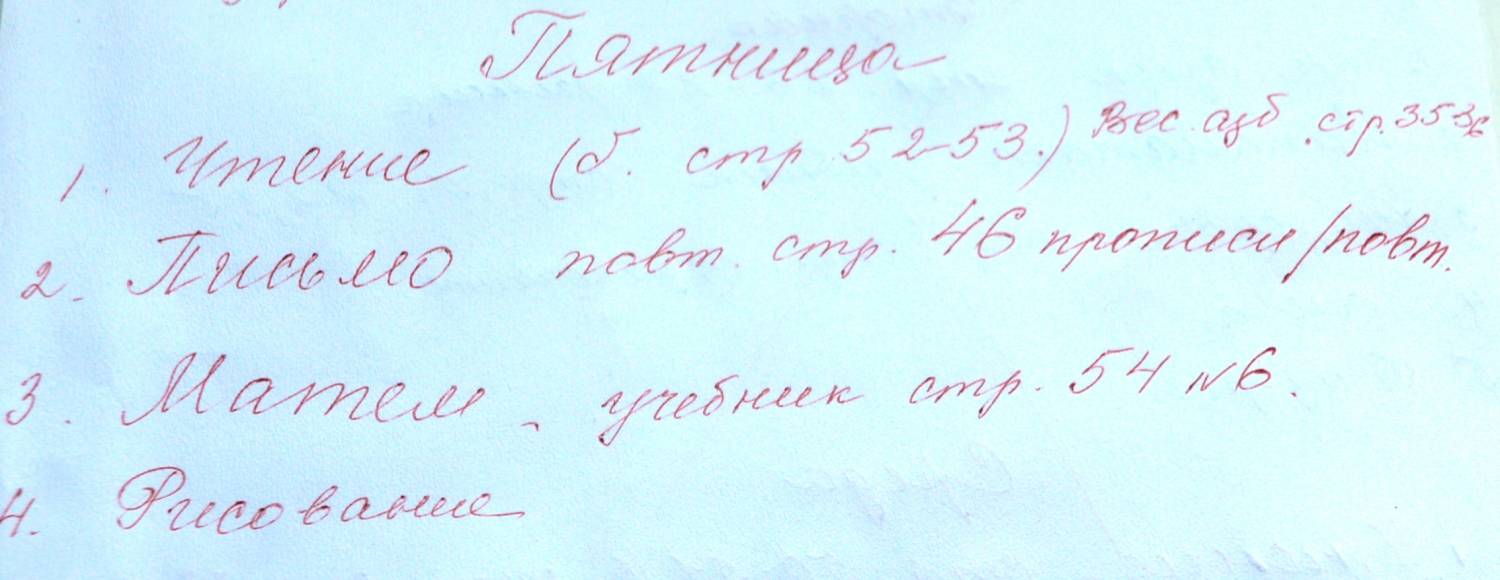 Пятница
1. Чтение (б. стр. 52-53.) Вес. азб. стр. 35
2. Письмо повт. стр. 46 прописи/повт.
3. Матем. учебник стр. 54 №6.
4. Рисование